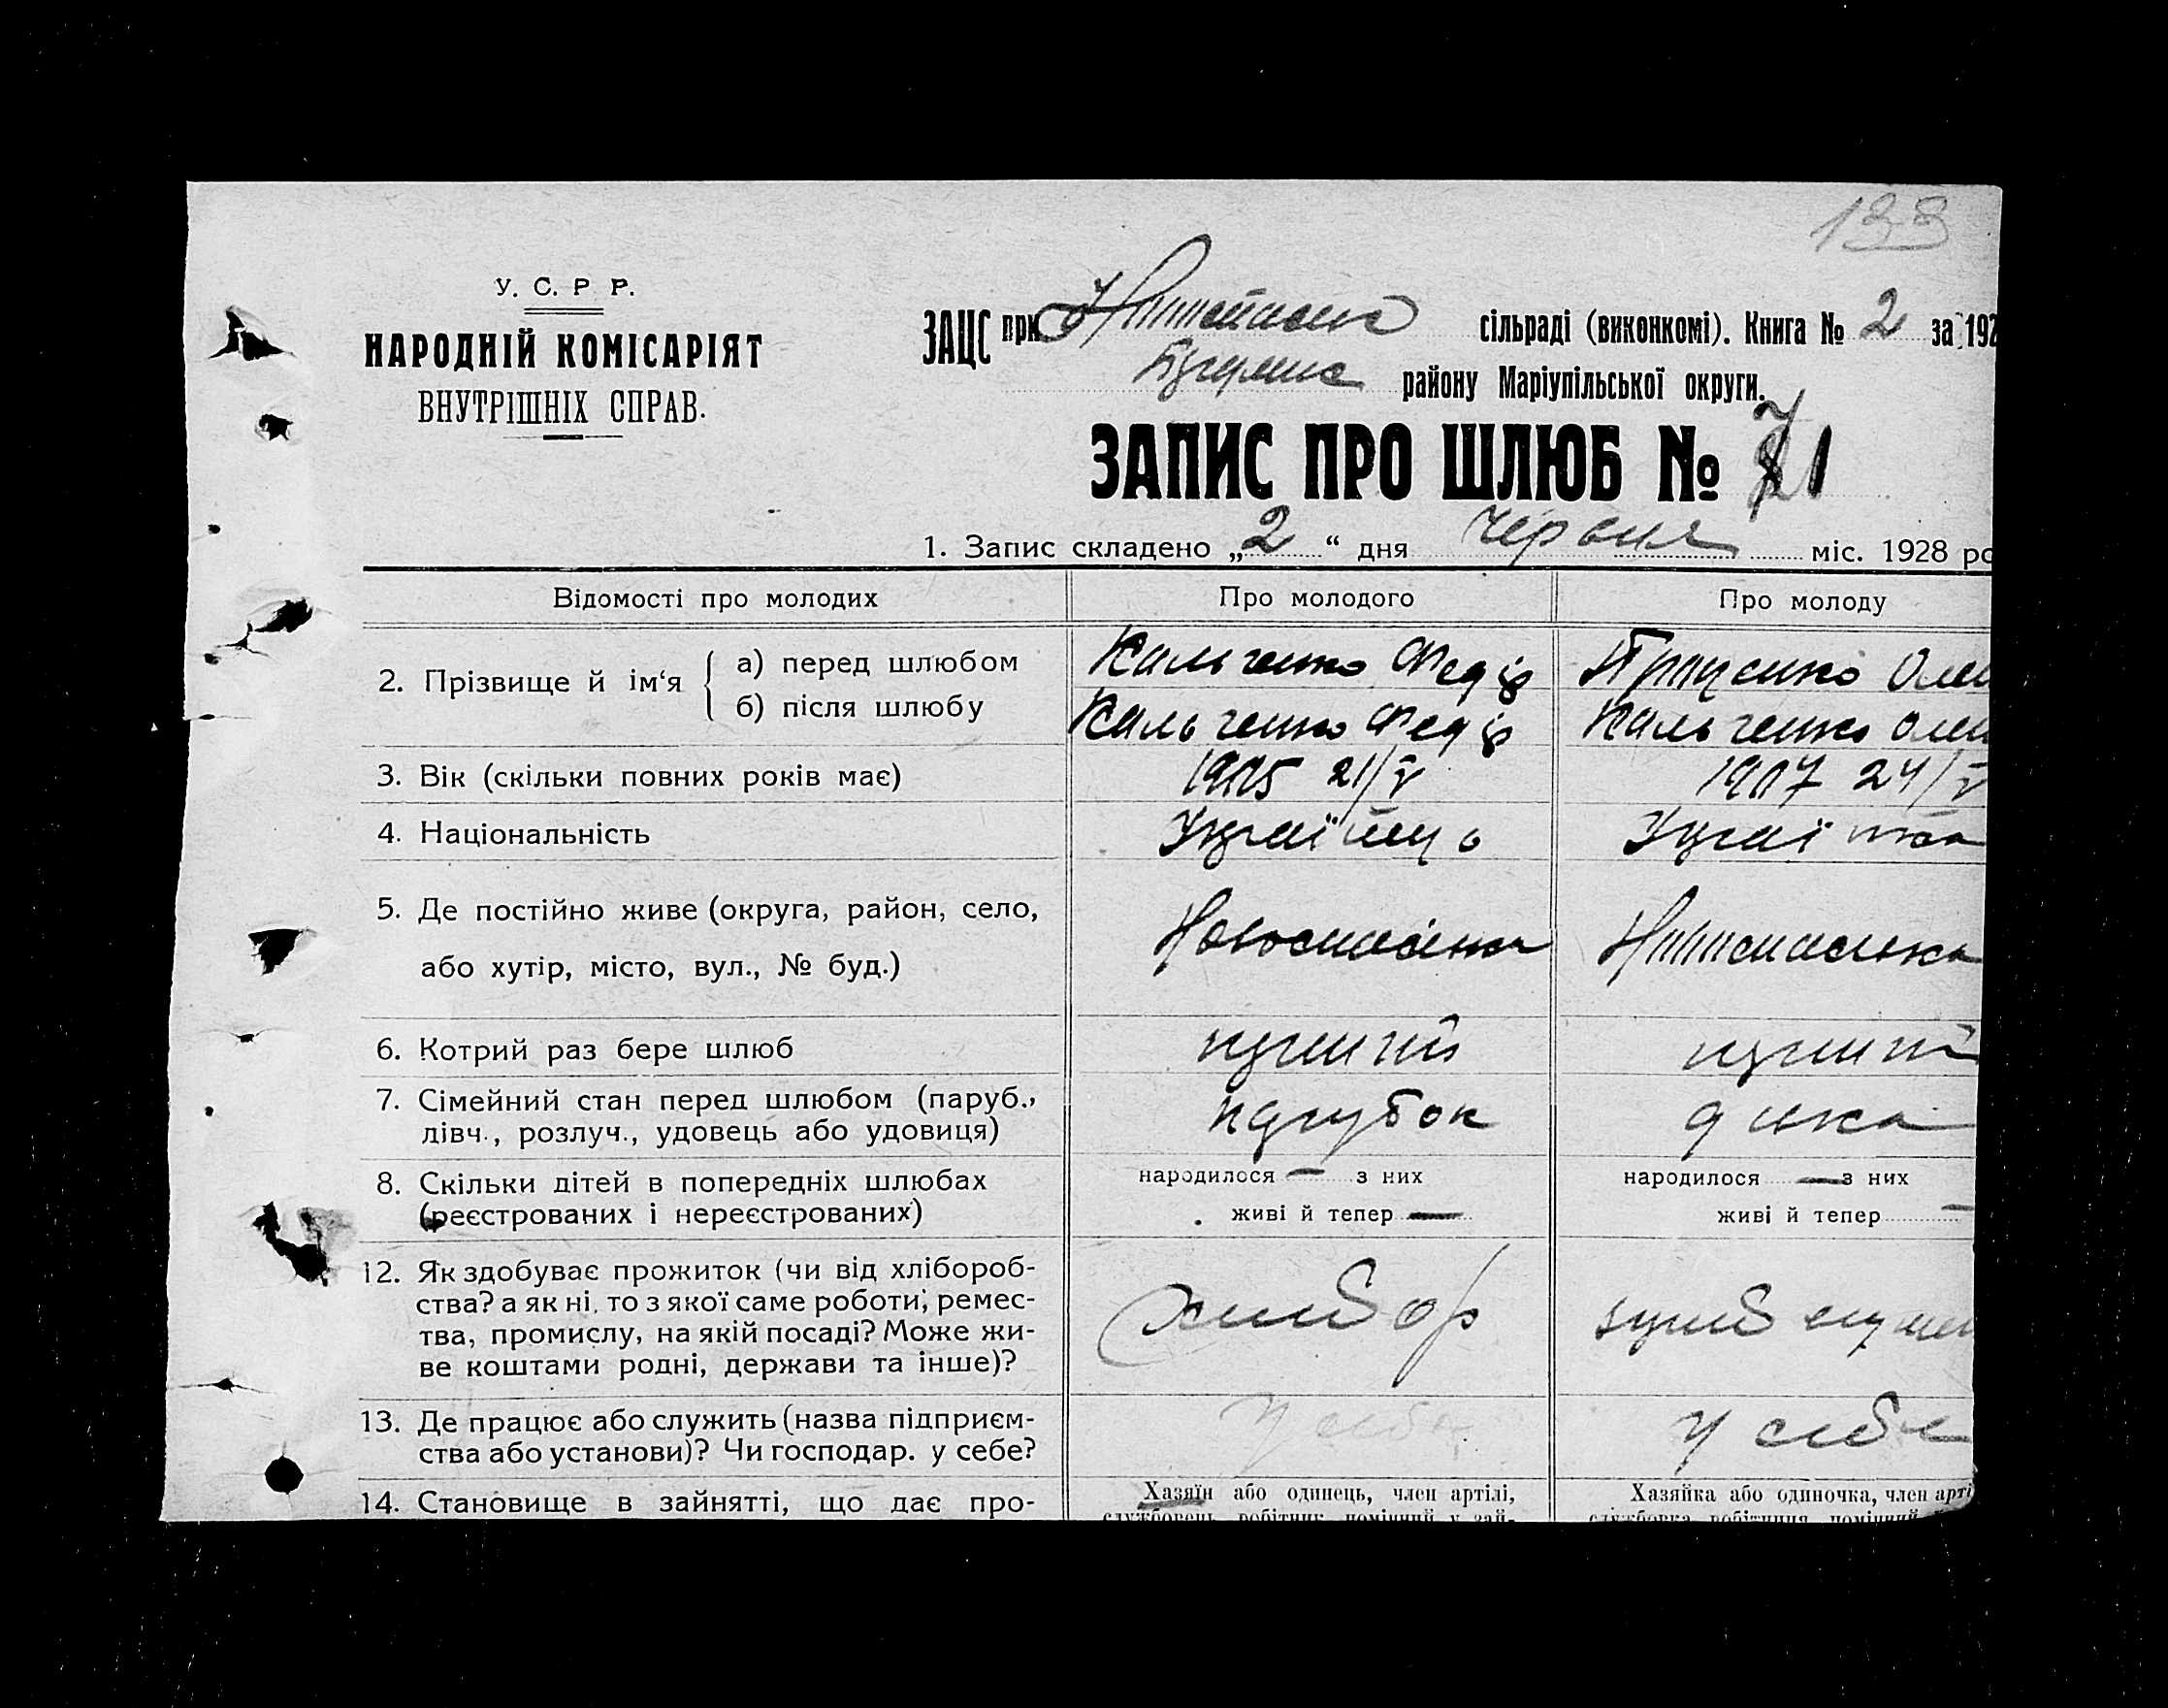 133
У. С. Р Р.
НАРОДНІЙ КОМІСАРІЯТ
ВНУТРІШНІХ СПРАВ.
ЗАЦС при сільраді (виконкомі). Книга № 2 за 192
району Маріупільської округи.
ЗАПИС ПРО ШЛЮБ № 71
1. Запис складено „2“ дня червня міс. 1928 ро
Відомості про молодих Про молодого Про молоду
2. Прізвище й ім‘я
а) перед шлюбом Кальченко Федір Проценко Олен
б) після шлюбу Кальченко Федір Кальченко Олен
3. Вік (скільки повних років має) 1905 21/V 1907 24/V
4. Національність Українць Українка
5. Де постійно живе (округа, район, село,
або хутір, місто, вул., № буд.)
6. Котрий раз бере шлюб перший перший
7. Сімейний стан перед шлюбом (паруб.,
дівч., розлуч., удовець або удовиця) парубок дівка
8. Скільки дітей в попередніх шлюбах
(реєстрованих і нереєстрованих)
народилося — з них
живі й тепер —
народилося — з них
живі й тепер —
12. Як здобуває прожиток (чи від хлібороб-
ства? а як ні, то з якої саме роботи, ремес-
тва, промислу, на якій посаді? Може жи-
ве коштами родні, держави та інше)?
хлібор
13. Де працює або служить (назва підприєм-
ства або установи)? Чи господар. у себе?
у себе у себе
14. Становище в зайнятті, що дає про-
Хазяїн або одинець, член артілі,
службовець, робітник, помічний у зай-
Хазяйка або одиночка, член арті
службовка, робітниця, помічний